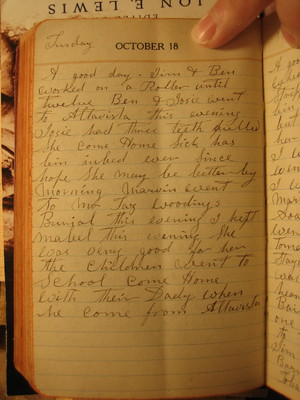 ION E. LEWIS
EDITED
Tuesday
OCTOBER 18
A good day. Jim & Ben
worked on a Roller until
twelve Ben & Josie went
to Altavista this evening
Josie had three teeth pulled
She come Home Sick has
bin in bed ever Since
hope She may be better by
Morning Marvin went
to Mr Tay Woodings
Burial this evening I kept
Mabel this evening She
was very good for her
the Children went to
School Come Home
with Their Dady when
he come from Altavista